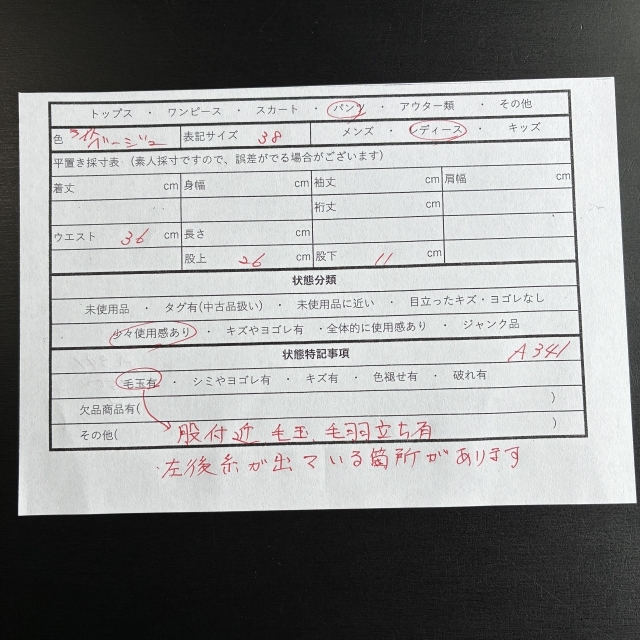 トップス ・ ワンピース ・ スカート ・ パンツ ・ アウター類 ・ その他
色 ライトベージュ 表記サイズ 38 メンズ ・ レディース ・ キッズ
平置き採寸表（素人採寸ですので、誤差がでる場合がございます）
着丈 cm 身幅 cm 袖丈 cm 肩幅 cm
裄丈 cm
ウエスト 36 cm 長さ cm
股上 26 cm 股下 11 cm
状態分類
未使用品 ・ タグ有(中古品扱い) ・ 未使用品に近い ・ 目立ったキズ・ヨゴレなし
少々使用感あり ・ キズやヨゴレ有 ・全体的に使用感あり ・ ジャンク品
状態特記事項 A341
毛玉有 ・ シミやヨゴレ有 ・ キズ有 ・ 色褪せ有 ・ 破れ有
欠品商品有( )
その他( 股付近 毛玉、毛羽立ち有 )
・左後糸が出ている箇所があります